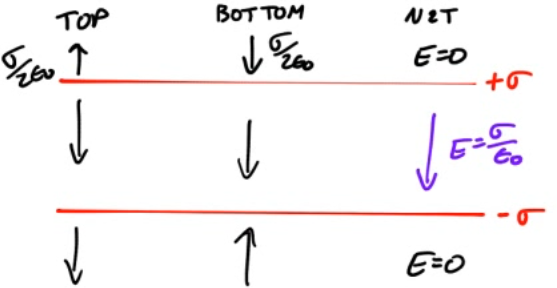 TOP BOTTOM NET
σ/2ε₀ σ/2ε₀ E=0
+σ
E=σ/ε₀
-σ
E=0